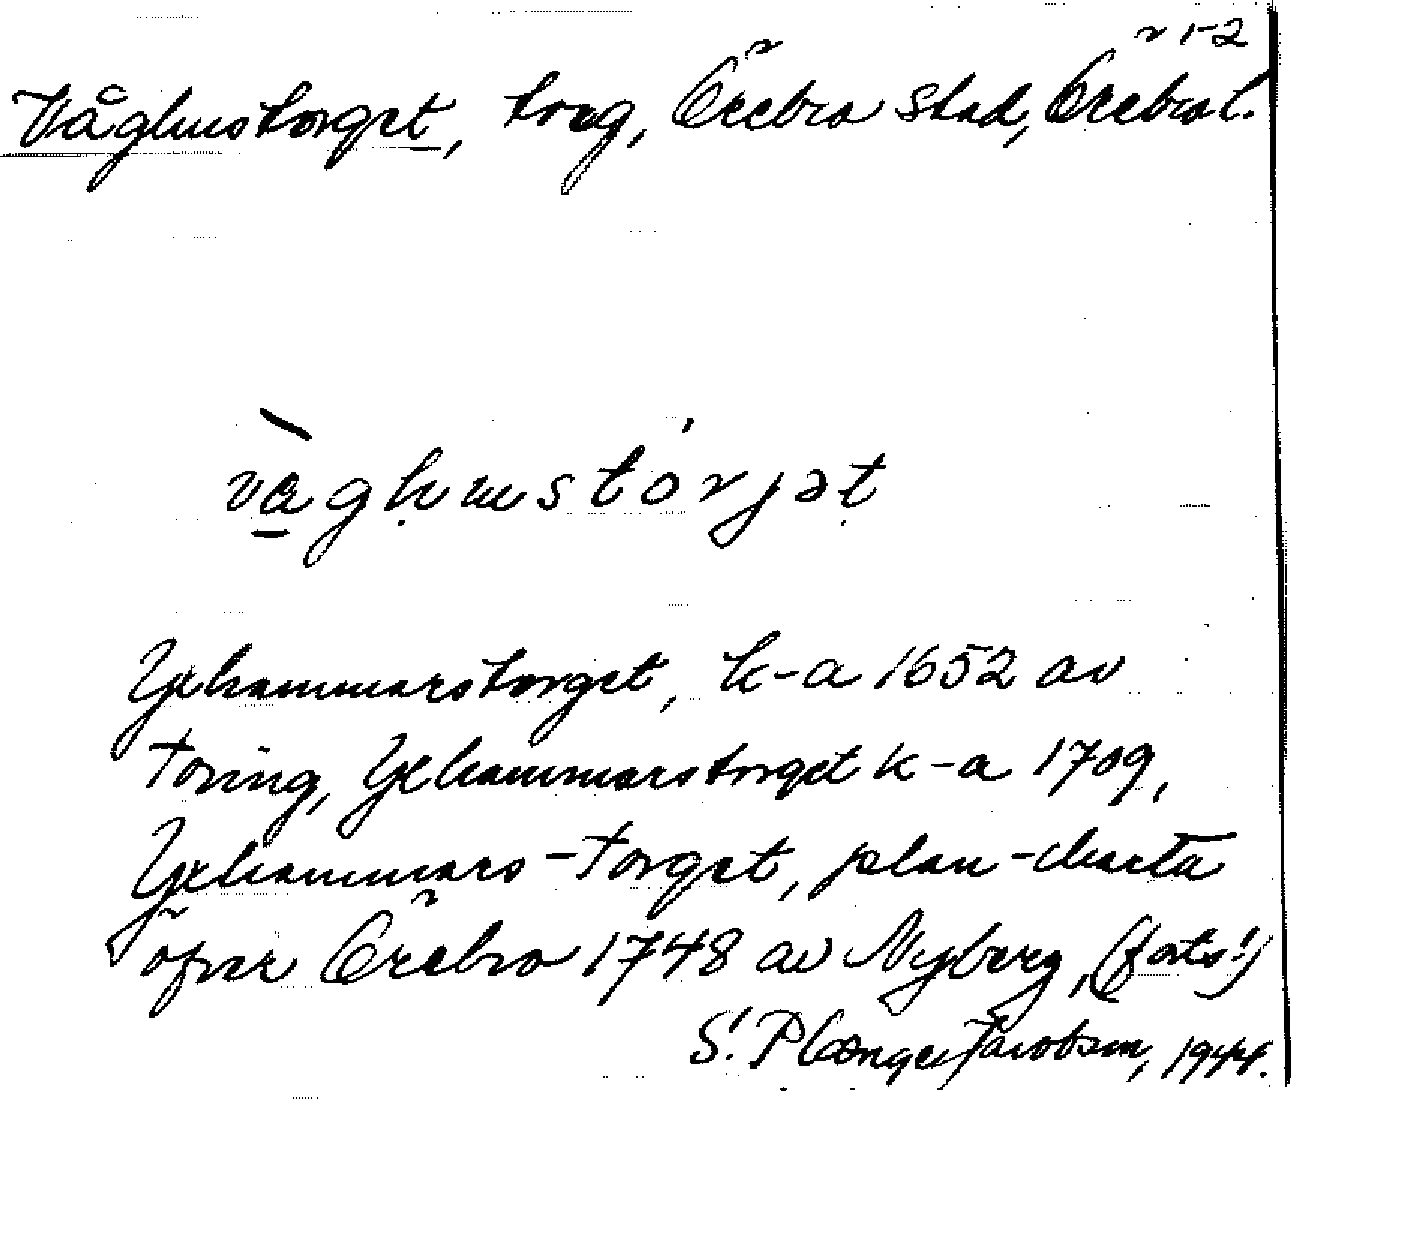 ~ 1-2
Våghustorget, torg, Örebro stad, Örebro l.
våghustórjət
Yxhammarstorget, k-a 1652 av
Toring, Yxhammarstorget k-a 1709,
Yxhammars-Torget, plan-charta
öfver Örebro 1748 av Nyberg, (forts!)
S. P Jacobson, 1944.